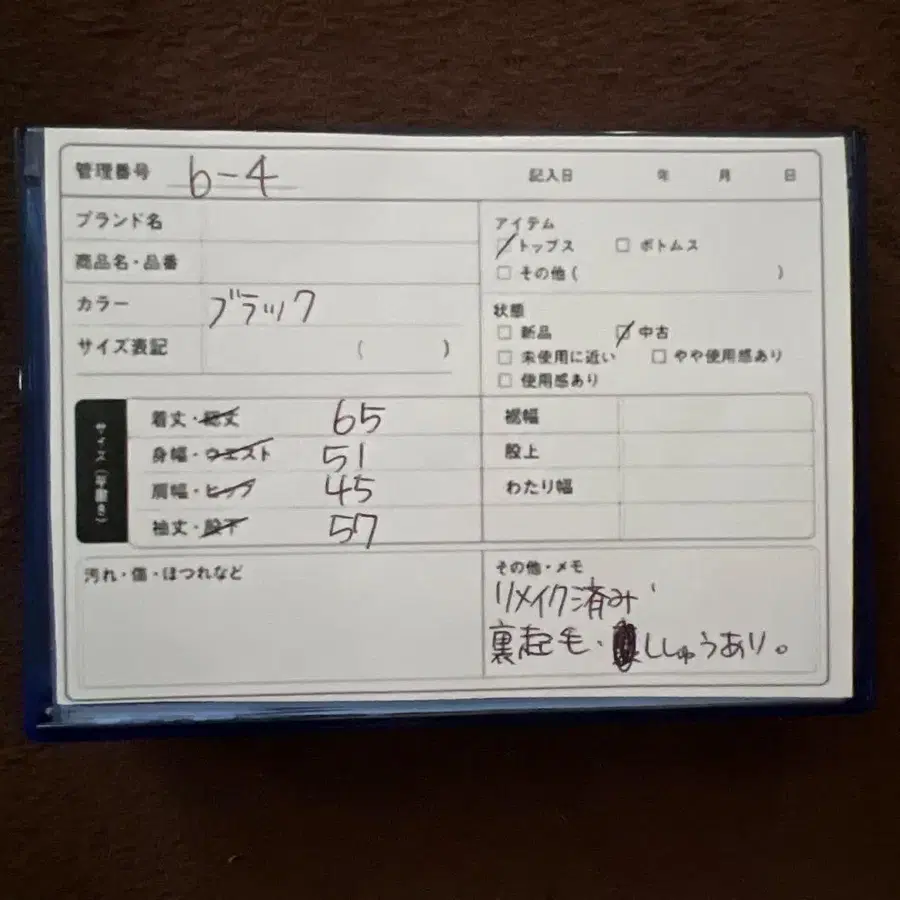 管理番号 b-4 記入日 年 月 日
ブランド名
商品名・品番
カラー ブラック
サイズ表記 ( )
アイテム
トップス ボトムス
その他( )
状態
新品 中古
未使用に近い やや使用感あり
使用感あり
サイズ(平置き)
着丈・総丈 65
身幅・ウエスト 51
肩幅・ヒップ 45
袖丈・股下 57
裾幅
股上
わたり幅
汚れ・傷・ほつれなど
その他・メモ
リメイク済み
裏起毛、ししゅうあり。